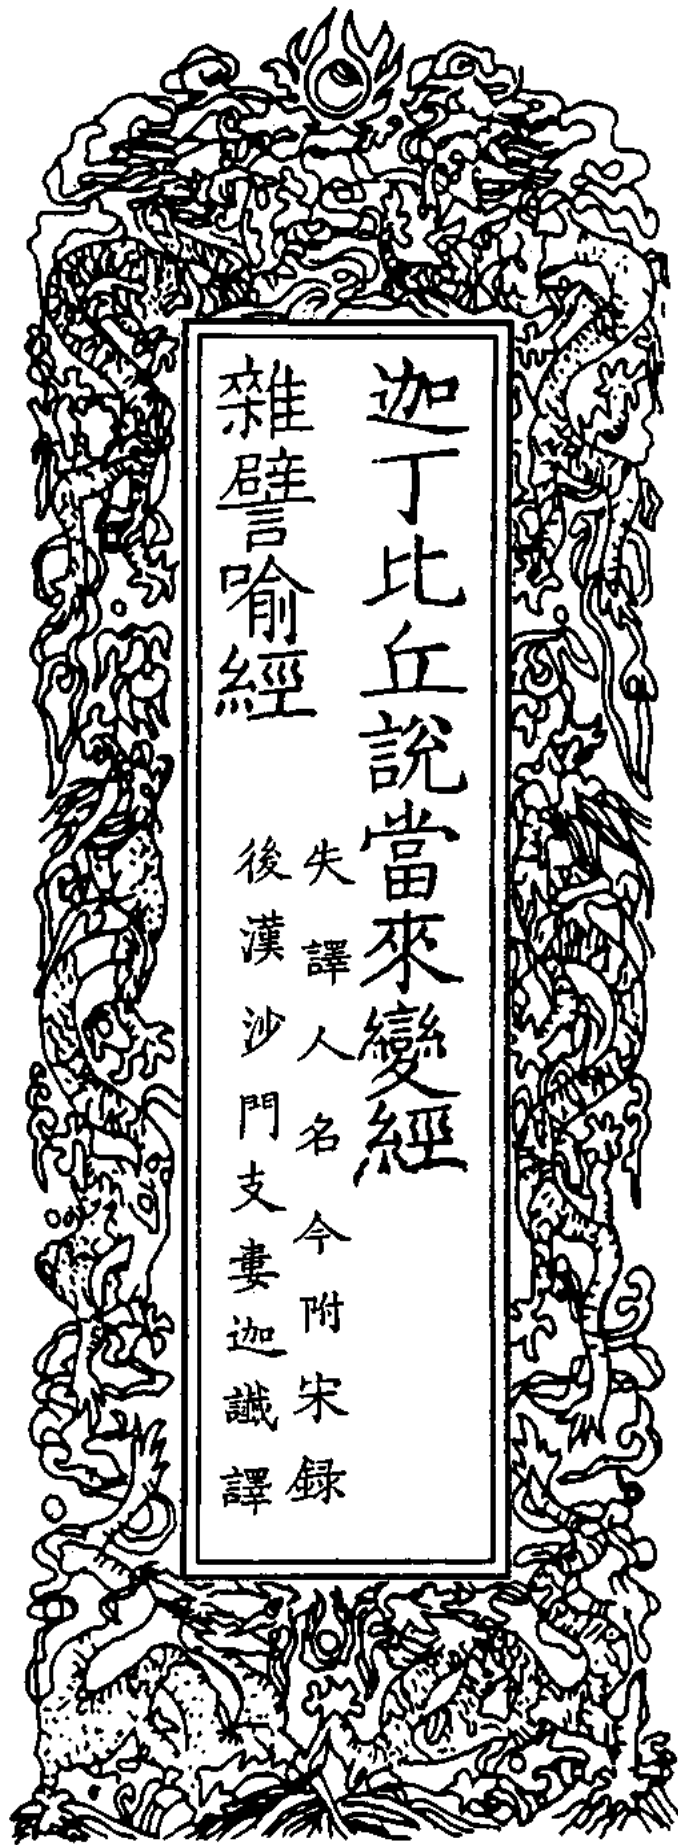 迦丁比丘説當來變經
失譯人名今附宋録
雜譬喻經
後漢沙門支婁迦讖譯